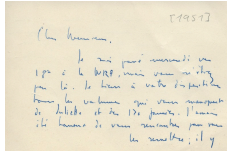 [1951]
Cher Monsieur,
Je suis passé mercredi vers
1 h à la NRF, mais vous n'étiez
pas là. Je tiens à votre disposition
tous les volumes qui vous manquent
de Juliette et des 120 journées. J'aurais
été heureux de vous rencontrer pour vous
les remettre, il y